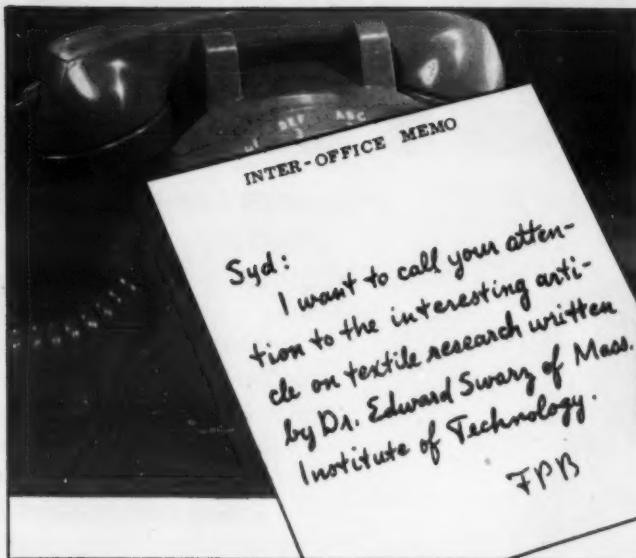 DEF ABC
3
INTER-OFFICE MEMO
Syd:
I want to call your atten-
tion to the interesting arti-
cle on textile research written
by Dr. Edward Swarz of Mass.
Institute of Technology.
FPB